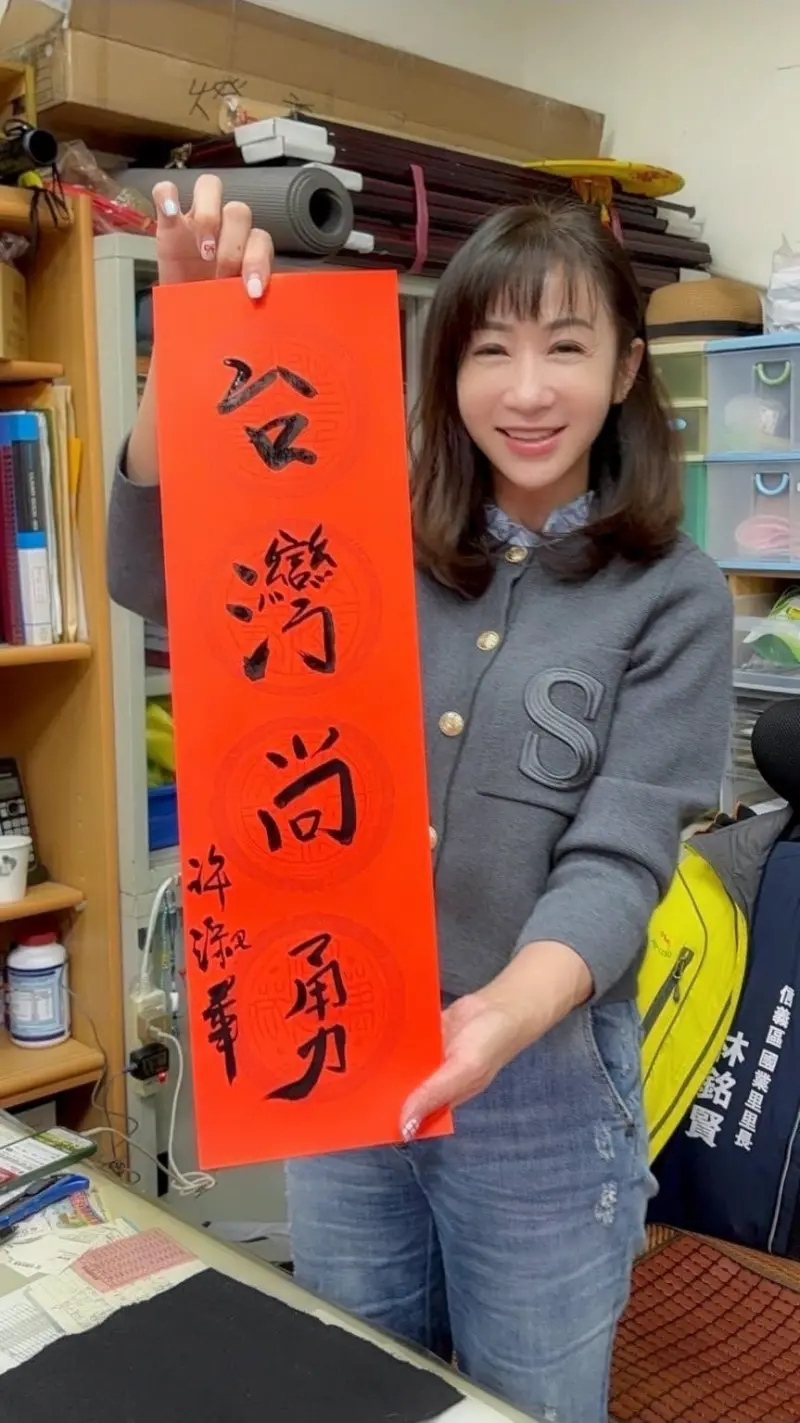 台灣尚勇
許淑華
S
信義區國業里里長
林銘賢